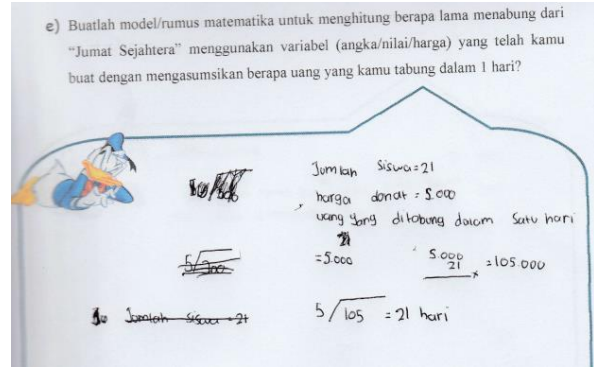 e) Buatlah model/rumus matematika untuk menghitung berapa lama menabung dari
"Jumat Sejahtera" menggunakan variabel (angka/nilai/harga) yang telah kamu
buat dengan mengasumsikan berapa uang yang kamu tabung dalam 1 hari?
Jumlah siswa = 21
harga donat = 5.000
uang yang ditabung dalam satu hari
= 5.000
5.000
21 x
= 105.000
5/105 = 21 hari
Jumlah siswa = 21